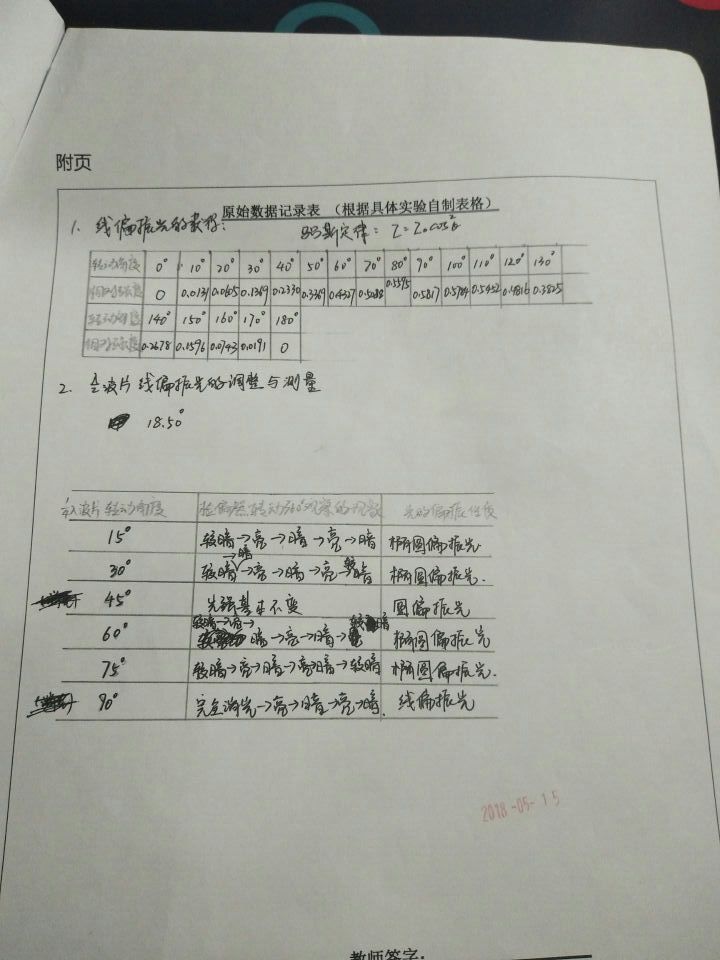 附页
原始数据记录表 (根据具体实验自制表格)
1. 线偏振光的获得: 马斯定律: I=I₀cos²θ
转动角度 0° 10° 20° 30° 40° 50° 60° 70° 80° 90° 100° 110° 120° 130°
相对强度 0 0.0131 0.0605 0.1369 0.2330 0.3369 0.4327 0.5088 0.5595 0.5817 0.5784 0.5452 0.4816 0.3825
转动角度 140° 150° 160° 170° 180°
相对强度 0.2678 0.1596 0.0743 0.0191 0
2. 全波片线偏振光的调整与测量
18.50°
1/4波片转动角度 检偏器转动360°观察的现象 光的偏振性质
15° 较暗→亮→暗→亮→暗 椭圆偏振光
30° 较暗→暗→亮→暗→亮 较暗 椭圆偏振光.
45° 光强基本不变 圆偏振光
60° 较暗→ 暗→亮→暗→ 较暗 椭圆偏振光
75° 较暗→亮→暗→亮→暗→较暗 椭圆偏振光.
90° 完全消光→亮→暗→亮→暗. 线偏振光
2018-05-15
教师签字: